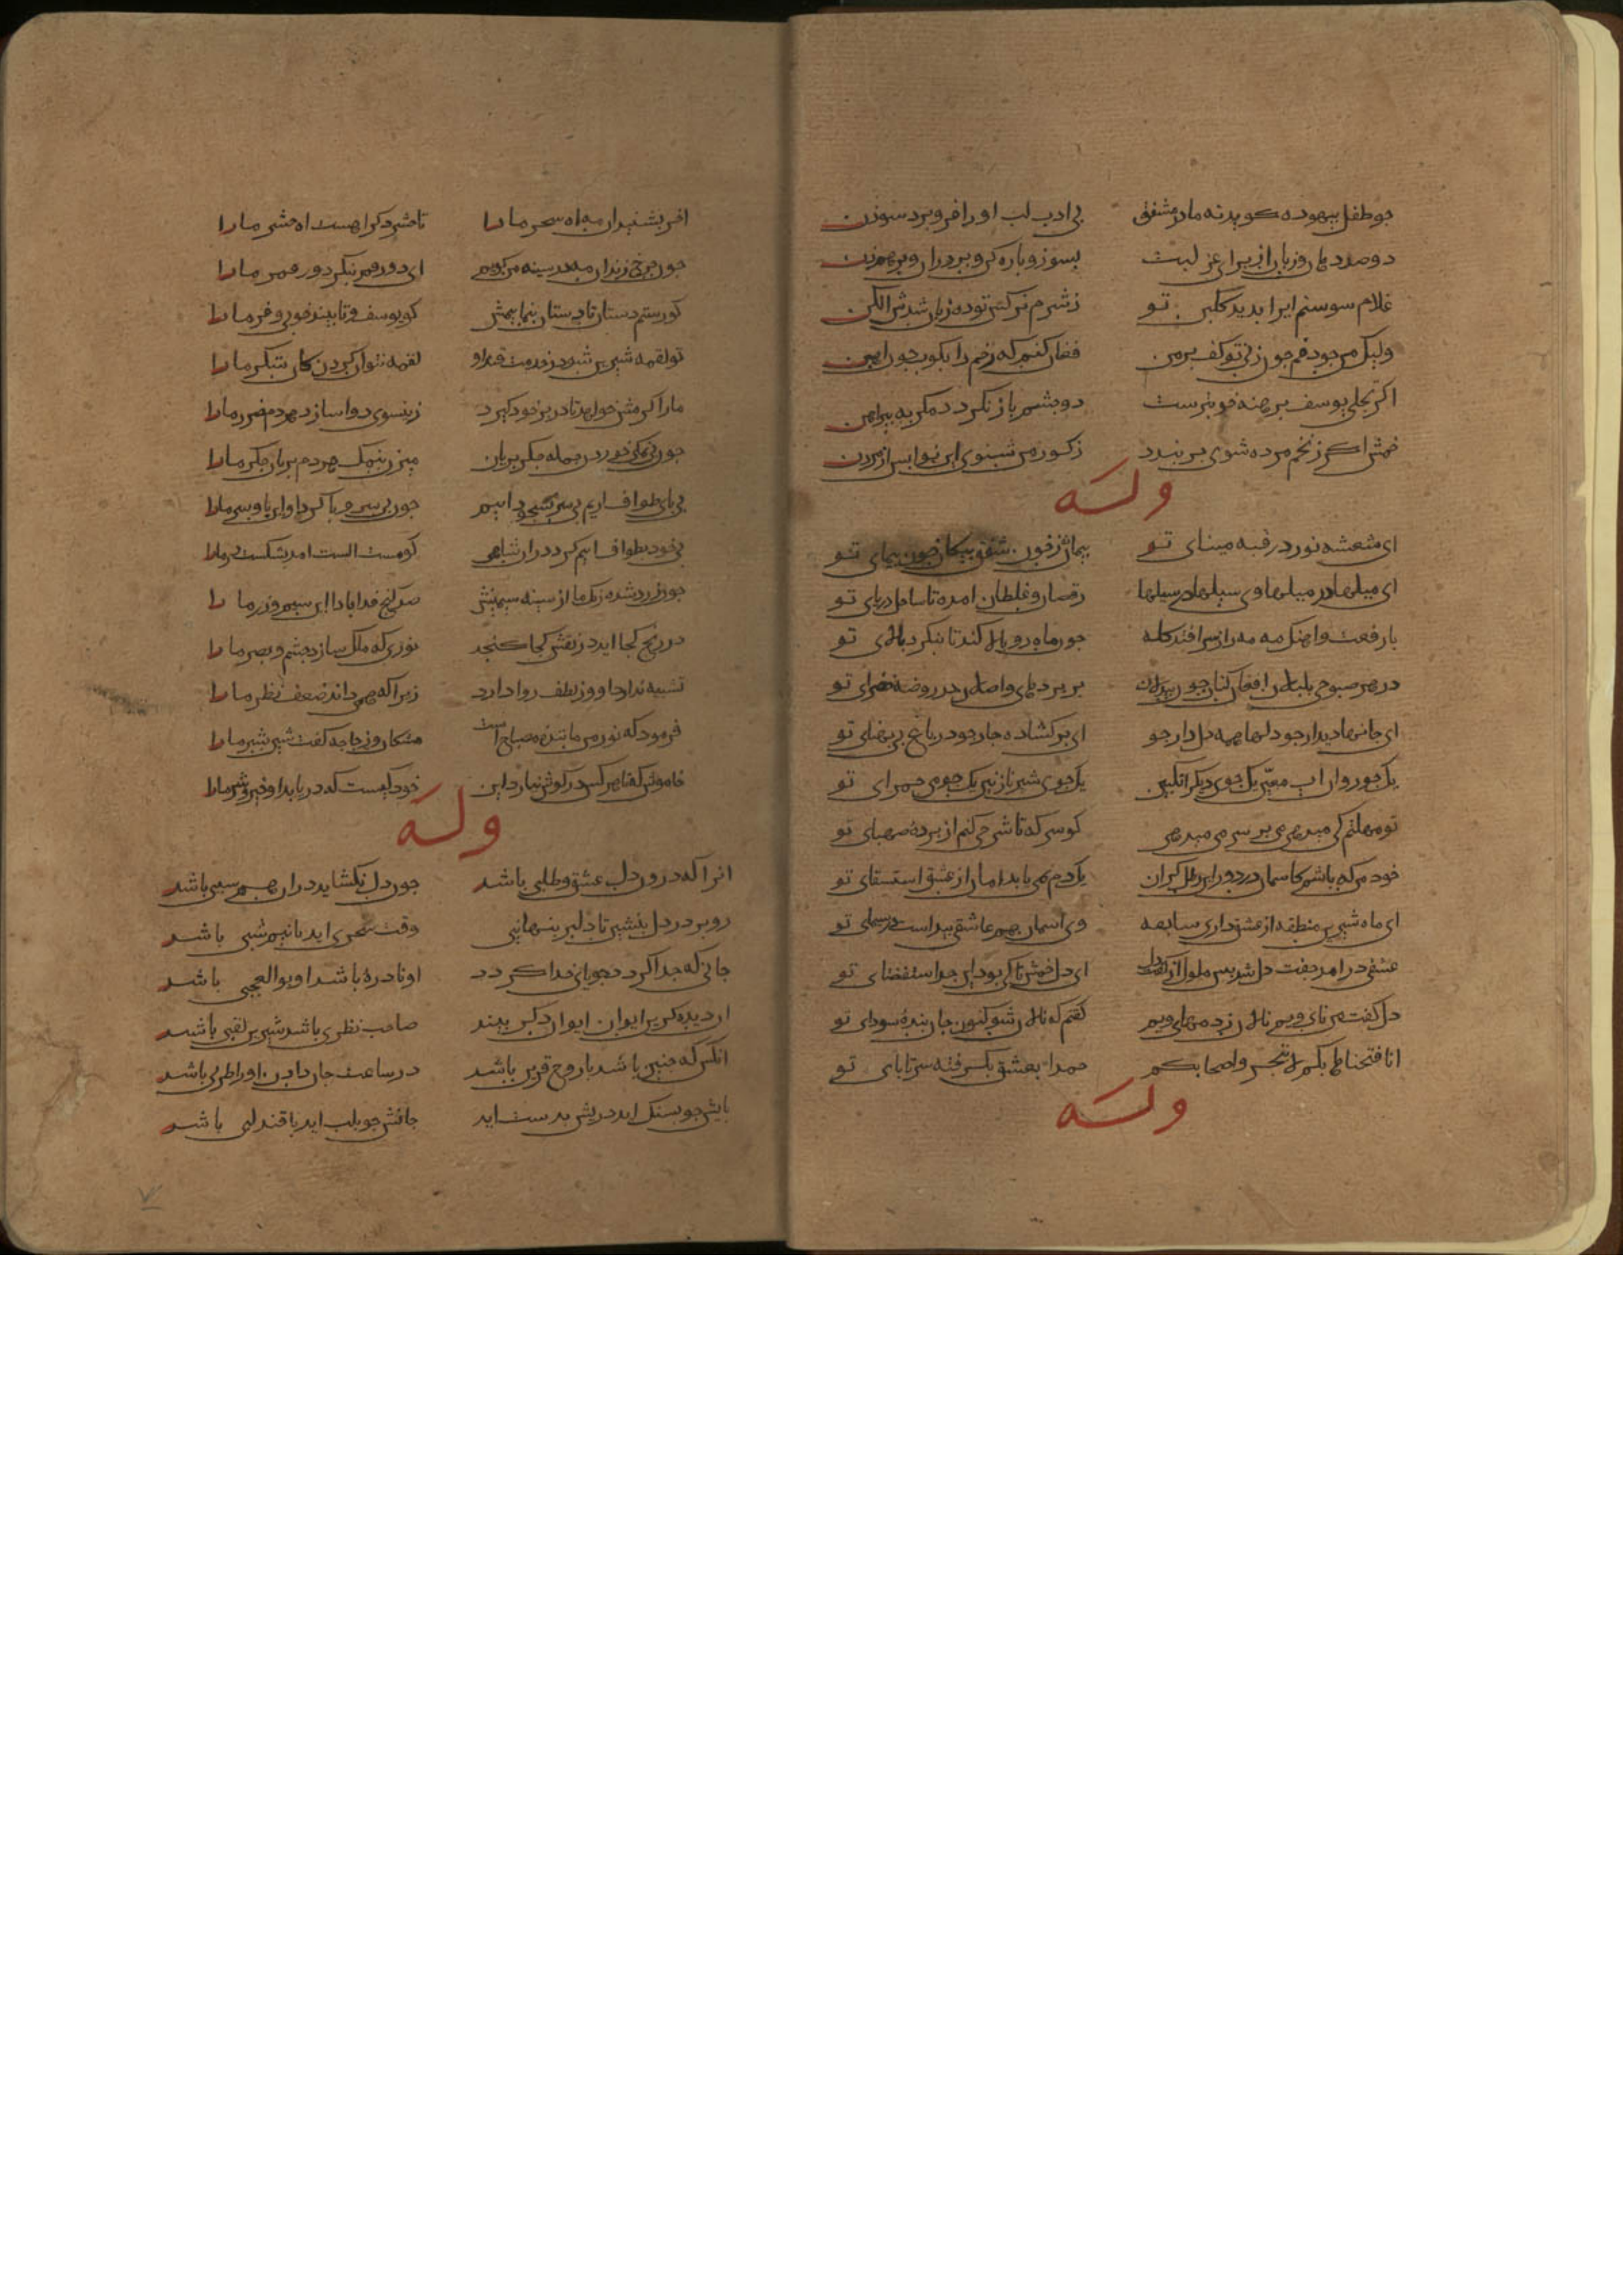 جو طفل بیهوده کوید نه مادر مشفق بی ادب لب او را فرو برد سوزن
دو صد دهان و زبان از برای عز لبت بسوز و باره کن و بردران و برهم زن
غلام سوسنم ایرا بدید کلبن تو ز شرم نرکس تو ده زبان شدش الکن
ولیک من جو دفم جون زنی تو کف بر من فغان کنم که رخم را بکوب جون هاون
اکر تجلی یوسف برهنه خوبترست دو جشم باز نکردد مکر به بیراهن
خمش اکر ز تنم مرده شوی بر بندد ز کور من شنوی این نوا بس از مردن
وله
ای شعشه نور در قبه مینای تو بیمانه خون شفق بنکان خون بیمای تو
ای میلها در میلها وی سیلها در سیلها رقصان و غلطان امده تا ساحل دریای تو
با رفعت و اهنک مه مه را ز سر افتد کله جون ماه رو بالا کند تا بنکرد بالای تو
در هر صبوحی بلبلان افغان کنان جون بیدلان بر بردهای واصلان در روضه خضرای تو
ای جانها دیدار جو دلها همه دلدار جو ای برکشاده جار جو در باغ بی بهنای تو
یک جو روان اب معین یک جوی دیکر انکبین یک جوی شیر نازنین یک جوی حمرای تو
تو مهلتم کی میدهی می بر سر می میدهی کو سر که تا شرحی کنم از برده صهبای تو
خود من که باشم کاسمان در دور این رطل کران یک دم نمی یابد امان از عشق استسقای تو
ای ماه شیرین منطقه از عشق داری سابقه وی اسمان هم عاشقی بیداست در سیمای تو
عشقی در امد جفت دل شد بس ملول از کفت دل ای دل خمش تا کی بود این جد استقصای تو
دل کفت من نای ویم نالان ز دمهای ویم کفتم که نالان شو کنون جان بنده سودای تو
انا فتحنا بابکم لا تهجروا اصحابکم حمدا بعشق بکرفته سر تا بای تو
وله
اخر بشنید ان مه اه سحر ما را تا حشر دکر امد امشب حشر ما را
جون جرخ زند ان مه در سینه من کویم ای دور قمر بنکر دور قمر ما را
کو رستم دستان تا دستان بنماییمش کو یوسف تا بیند خوبی و فر ما را
تو لقمه شیرین شو در خدمت قند او لقمه نتوان کردن کان شکر ما را
ما را کرمش خواهد تا در بر خود کیرد زین سوی دوا سازد هر دم ضرر ما را
جون بی نمکی نتوان خوردن جکر بریان می زن بنمک هر دم بریان جکر ما را
بی بای طواف اریم بی سر بسجود اییم جون بی سر و با کرد او این با و سر ما را
بی خود بطواف اییم کرد در ان شاهی کو مست الست امد بشکست در ما را
جون زر شده رنک ما از سینه سیمینش صد کنج فدا بادا این سیم و زر ما را
در رنج کجا اید در نقش کجا کنجد نوری که ملک سازد جشم و بصر ما را
تشبیه ندارد او وز لطف روا دارد زیرا که همی داند ضعف نظر ما را
فرمود که نور من ماننده مصباح است مشکات و زجاجه کفت سینه بصر ما را
خاموش کن تا هر کس در کوش نیارد این خود کیست که دریابد او خیر و شر ما را
وله
انرا که درون دل عشق و طلبی باشد جون دل نکشاید در ان هم سببی باشد
رو بر در دل بنشین تا دلبر بنهانی وقت سحری اید یا نیم شبی باشد
جانی که جدا کردد جویای خدا کردد او نادره باشد او بوالعجبی باشد
ان دیده کزین ایوان ایوان دکر بیند صاحب نظری باشد شیرین لقبی باشد
انکس که جنین باشد با روح قرین باشد در ساعت جان دادن او را طربی باشد
بایش جو بسنک اید دریش بدست اید جانش جو بلب اید با قند لبی باشد